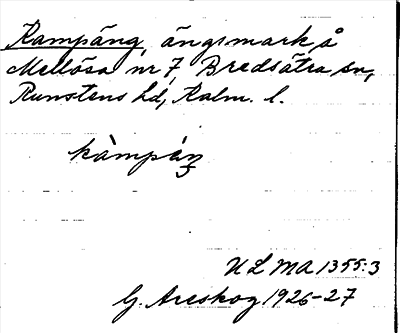 Kampäng, ängsmark å
Mellösa nr 7, Bredsätra sn,
Runstens hd, Kalm. l.
kàmpáŋ
ULMA 1355:3
G. Areskog 1926-27